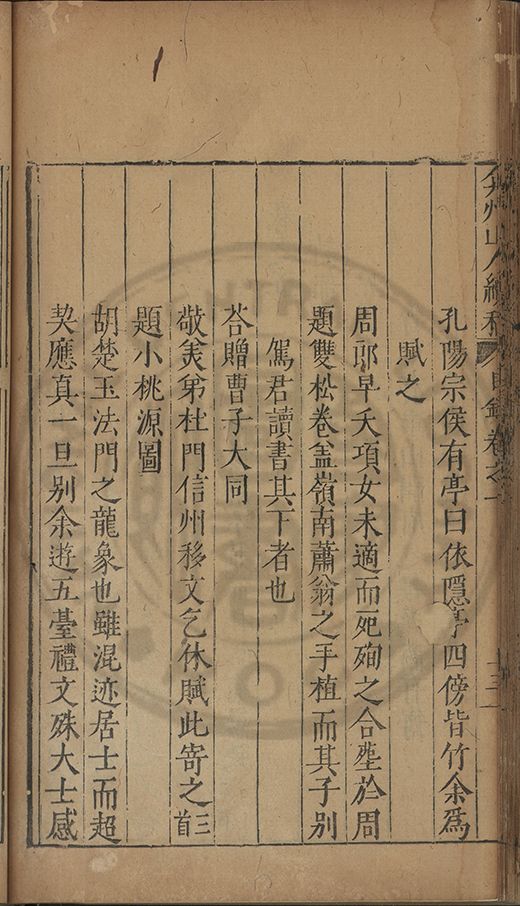 弇州山人續稿 目錄卷之一 十三
孔陽宗侯有亭曰依隱亭四傍皆竹余爲
賦之
周郎早夭項女未適而死殉之合塟於周
題雙松卷盖嶺南蕭翁之手植而其子別
駕君讀書其下者也
荅贈曹子大同
敬美弟杜門信州移文乞休賦此寄之三首
題小桃源圖
胡楚玉法門之龍象也雖混迹居士而超
契應真一旦別余遊五臺禮文殊大士感